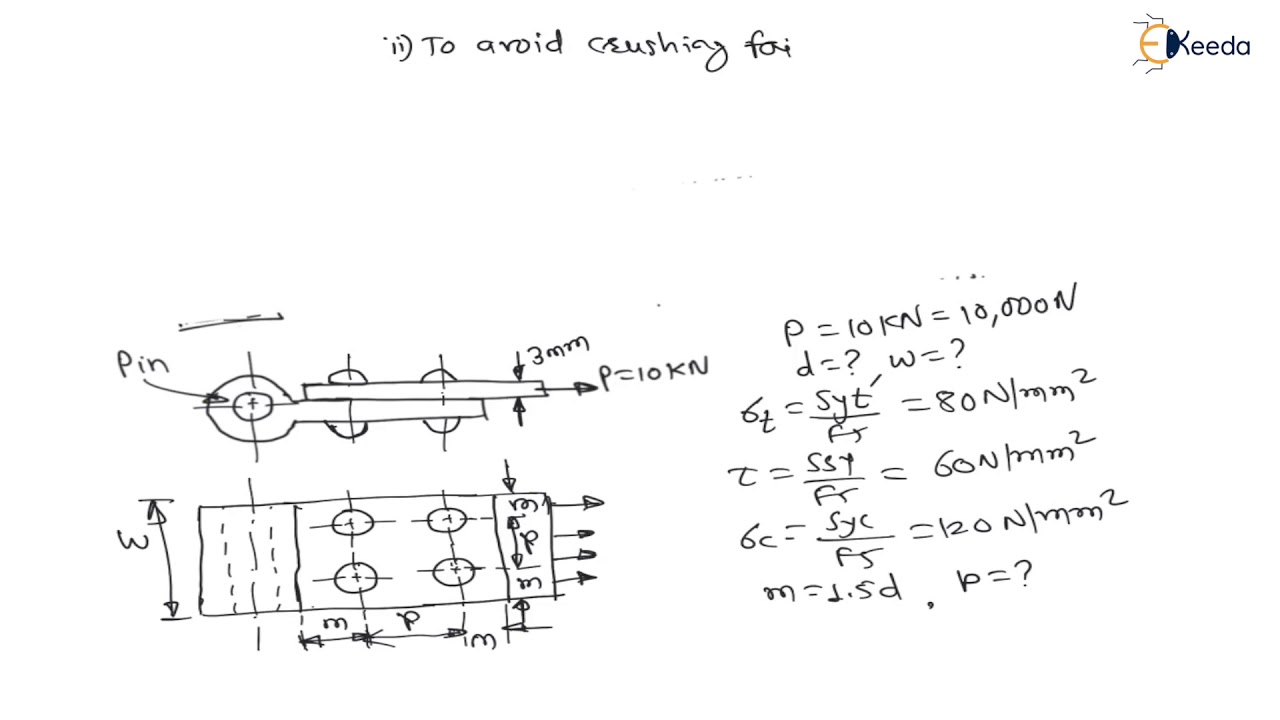 ii) To avoid crushing fai
EKeeda
Pin
3mm
P=10KN
w
m
p
m
m
p
m
P = 10 KN = 10,000N
d=? , w=?
σt = Syt / Fs = 80N/mm²
τ = Ssy / Fs = 60N/mm²
σc = Syc / Fs = 120N/mm²
m=1.5d , p=?